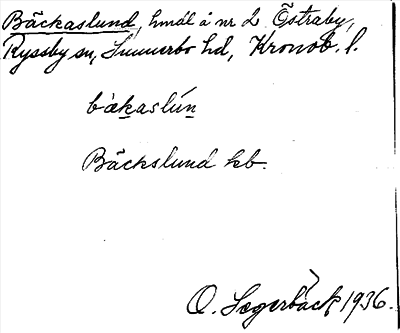 Bäckaslund, hmål å nr 2 Östraby,
Ryssby sn, Sunnerbo hd, Kronob. l.
bàkaslún
Bäckslund kb.
O. Segerbäck 1936.